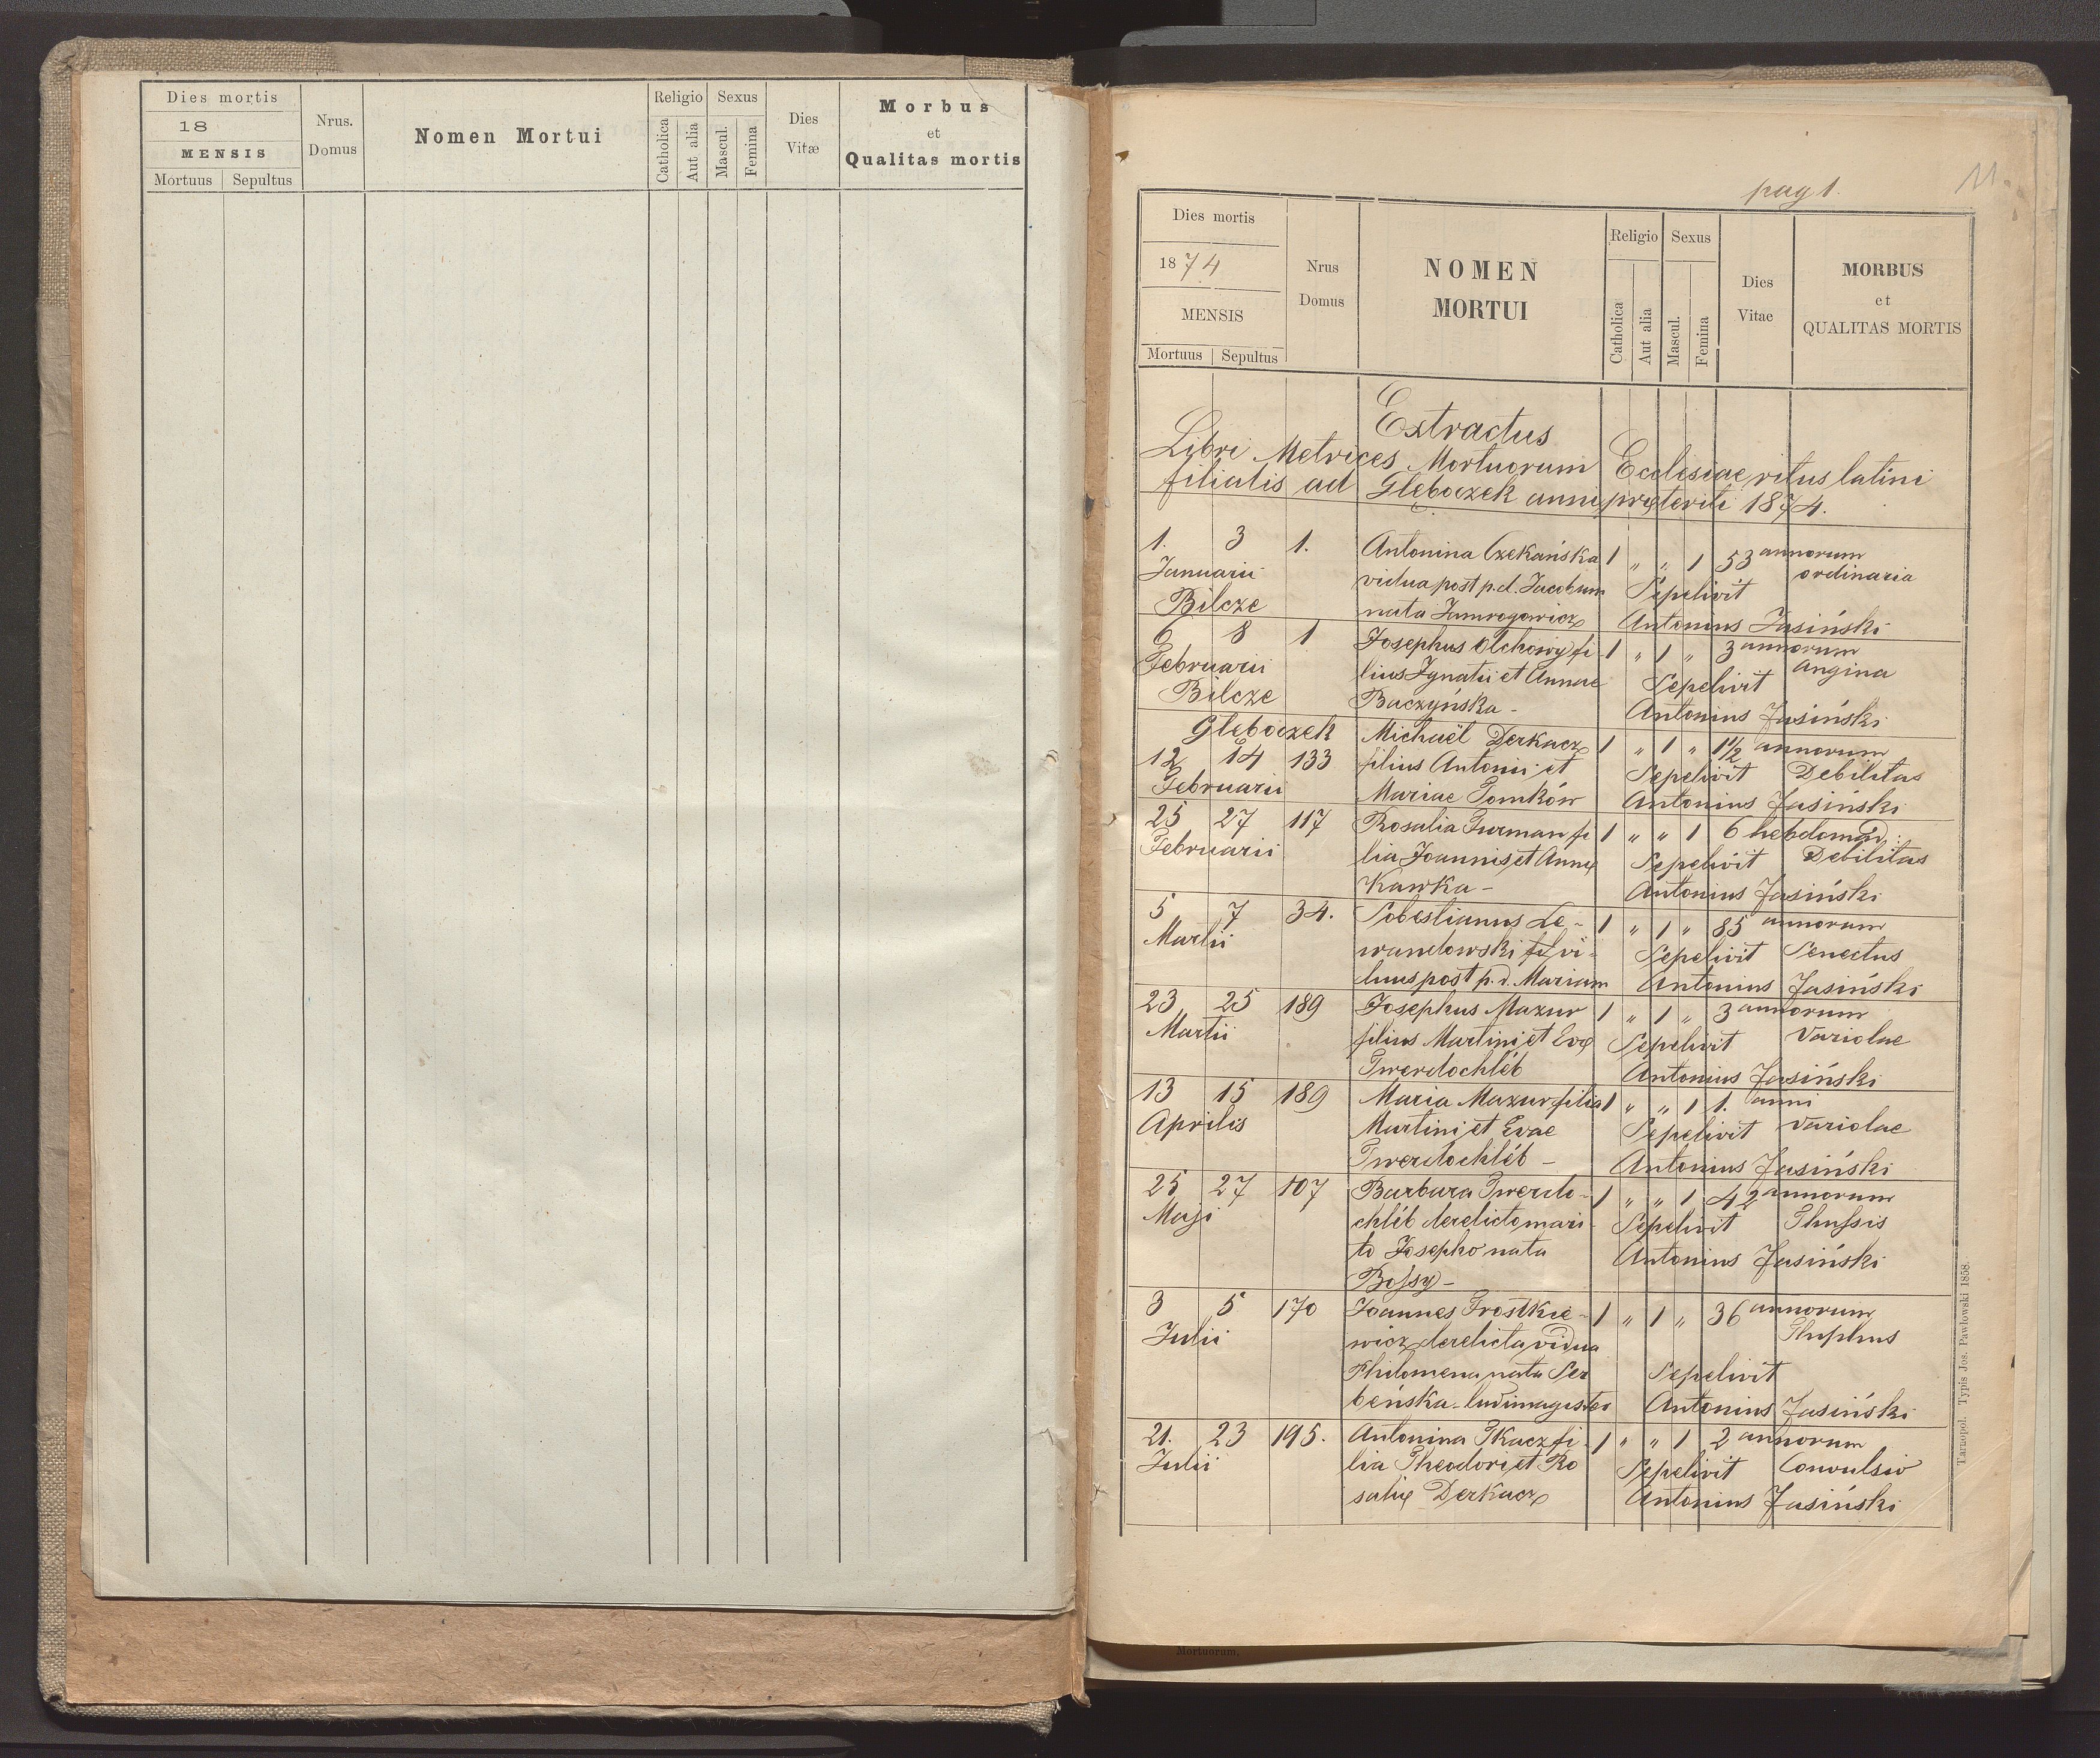 Dies mortis
18
MENSIS
Mortuus Sepultus
Nrus.
Domus
Nomen Mortui
Religio
Catholica
Aut alia
Sexus
Mascul.
Femina
Dies
Vitæ
Morbus
et
Qualitas mortis
pag 1.
11.
Dies mortis
1874
MENSIS
Mortuus Sepultus
Nrus
Domus
NOMEN
MORTUI
Religio
Catholica
Aut alia
Sexus
Mascul.
Femina
Dies
Vitae
MORBUS
et
QUALITAS MORTIS
Extractus
Libri Metrices Mortuorum Ecclesiae ritus latini
filialis ad Głeboczek anni præteriti 1874.
1. 3 1. Antonina Czekańska 1 „ „ 1 53 annorum
Januarii vidua post p.d. Jacobum Sepelivit ordinaria
Bilcze nata Antonius Jasiński
6 8 1 Josephus Olchowy fi- 1 „ 1 „ 3 annorum
Februarii lius Ignatii et Annae Sepelivit Angina
Bilcze Buczyńska - Antonius Jasiński
Głeboczek Michaël Derkacz 1 „ 1 „ 1 1/2 annorum
12 14 133 filius Antonii et Sepelivit Debilitas
Februarii Mariae Tomków Antonius Jasiński
25 27 117 Rosalia Furman fi 1 „ „ 1 6 hebdomad:
Februarii lia Joannis et Annæ Sepelivit Debilitas
Kawka - Antonius Jasiński
5 7 34. Sobestianus Le- 1 „ 1 „ 85 annorum
Martii wandowski vi- Sepelivit Senectus
duus post p.d. Mariam Antonius Jasiński
23 25 189 Josephus Mazur 1 „ 1 „ 3 annorum
Martii filius Martini et Evæ Sepelivit Variolae
Twerdochléb Antonius Jasiński
13 15 189 Maria Mazur filia 1 „ „ 1 1. anni
Aprilis Martini et Evae Sepelivit Variolae
Twerdochléb - Antonius Jasiński
25 27 107 Barbara Twerdo- 1 „ „ 1 42 annorum
Maji chléb derelicto mari- Sepelivit Thussis
to Josepho nata Antonius Jasiński
Bossy -
3 5 170 Joannes Frostkie- 1 „ 1 „ 36 annorum
Julii wicz derelicta vidua Thyphus
Philomena nata Ser Sepelivit
beńska - ludimagister Antonius Jasiński
21. 23 195. Antonina Tkacz fi- 1 „ „ 1 2 annorum
Julii lia Theodori et Ro Sepelivit Convulsio
saliæ Derkacz Antonius Jasiński
Tarnopol. Typis Jos. Pawłowski 1858.
Mortuorum.